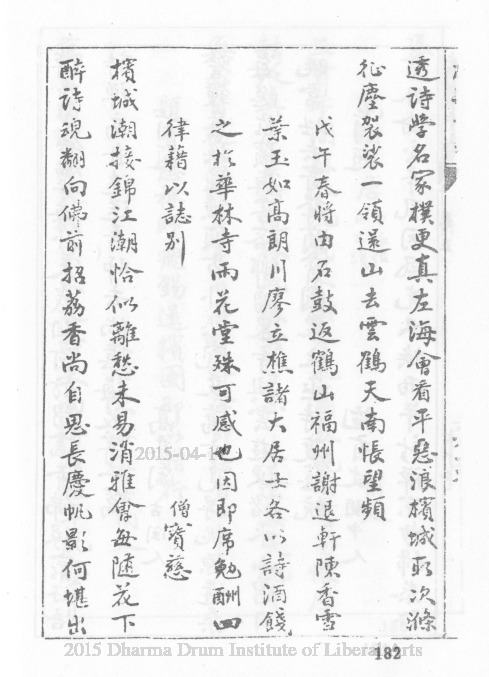 透詩學名家樸更真左海會看平惡浪檳城取次滌
征塵袈裟一領還山去雲鶴天南悵望頻
戊午春將由石鼓返鶴山福州謝退軒陳香雪
葉玉如高朗川廖立樵諸大居士各以詩酒餞
之於華林寺雨花堂殊可感也因即席勉酬四
律藉以誌別
僧寶慈
檳城潮接錦江潮恰似離愁未易消雅會每隨花下
醉詩魂翻向佛前招荔香尚自思長慶帆影何堪出
2015-04-1
2015 Dharma Drum Institute of Liberal Arts
182